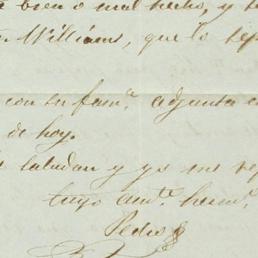 bien o mal hecho, y
Williams, que lo
con su fam.ᵃ adjunta
de hoy.
saludan y yo me
tuyo am.ᵒ herm.ᵒ
Pedro